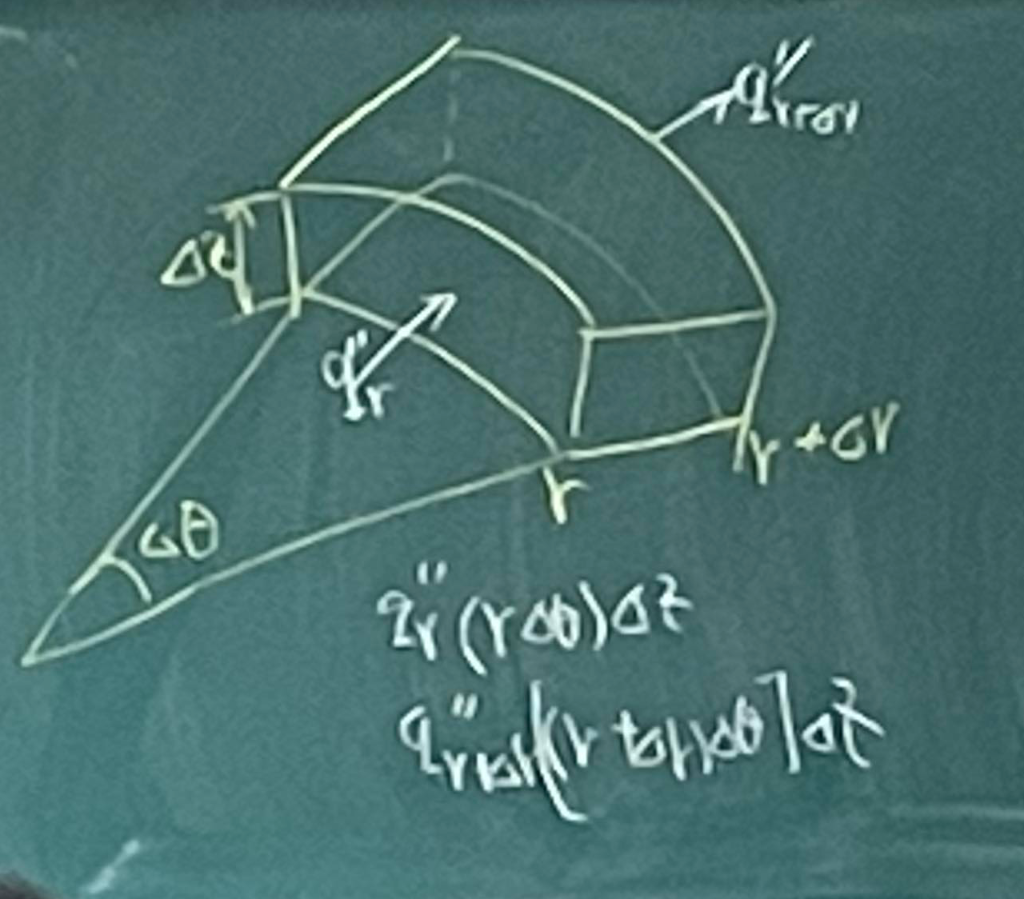 q″r+Δr
Δz
q″r
r + Δr
r
Δθ
q″r (rΔθ)Δz
q″r+Δr[(r+Δr)Δθ]Δz